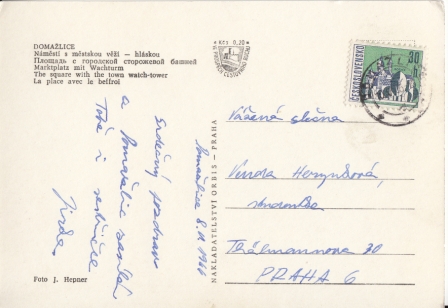 DOMAŽLICE
Náměstí s městskou věží - hláskou
Площадь с городской сторожевой башней
Marktplatz mit Wachturm
The square with the town watch-tower
La place avec le beffroi
Kčs 0,20
30 h
ČESKOSLOVENSKO
Srdečný pozdrav
z Domažlic
Jirka
Domažlice 1966
NAKLADATELSTVÍ ORBIS - PRAHA
Vážená slečna
studentka
Thälmannova 20
PRAHA 6
Foto J. Hepner